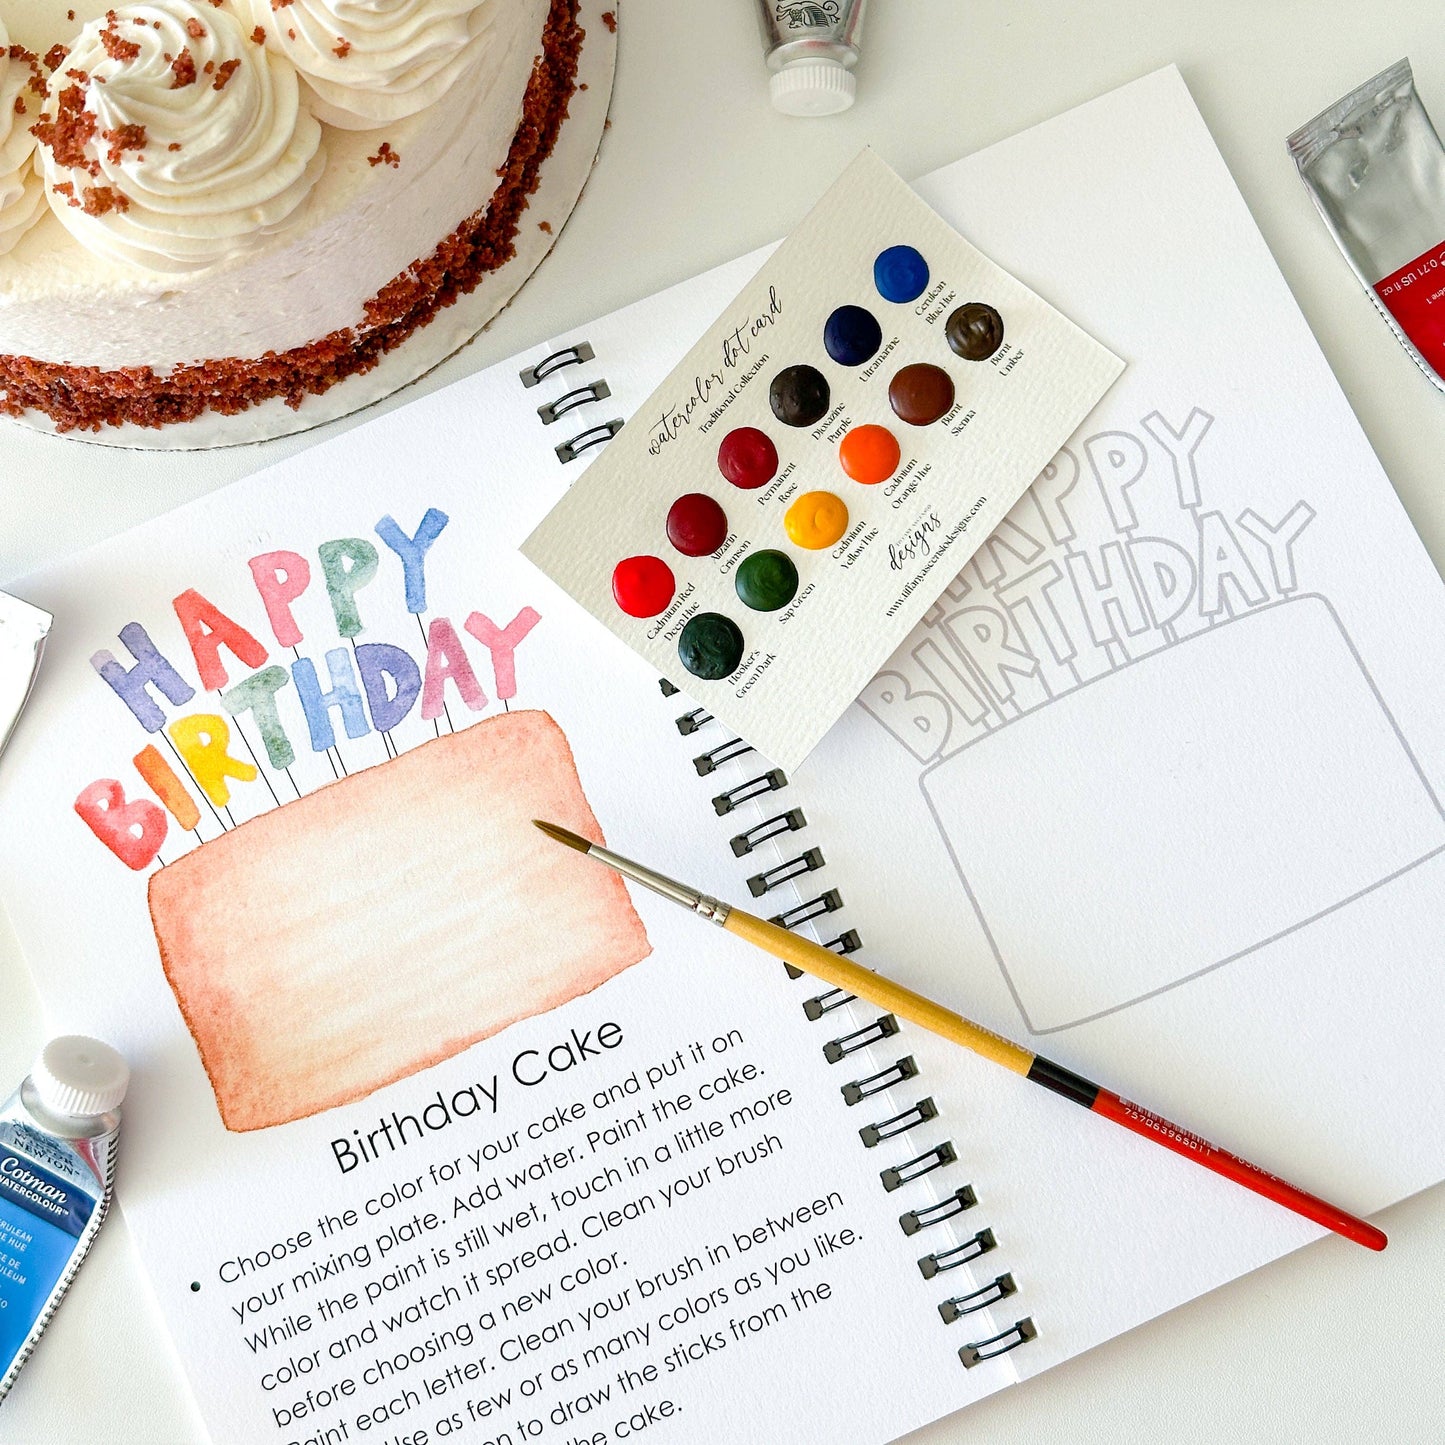 HAPPY
BIRTHDAY
Birthday Cake
Choose the color for your cake and put it on
your mixing plate. Add water. Paint the cake.
While the paint is still wet, touch in a little more
color and watch it spread. Clean your brush
before choosing a new color.
Paint each letter. Clean your brush in between
Use as few or as many colors as you like.
to draw the sticks from the
the cake.
watercolor dot card
Traditional Collection
Cerulean
Blue Hue
Ultramarine
Dioxazine
Purple
Permanent
Rose
Alizarin
Crimson
Cadmium Red
Deep Hue
Burnt
Umber
Burnt
Sienna
Cadmium
Orange Hue
Cadmium
Yellow Hue
Sap Green
Hooker's
Green Dark
designs
www.tiffanyascensiodesigns.com
HAPPY
BIRTHDAY
PRINCETON
757063965011
NEWTON
Cotman
WATERCOLOUR
0.71 US fl oz